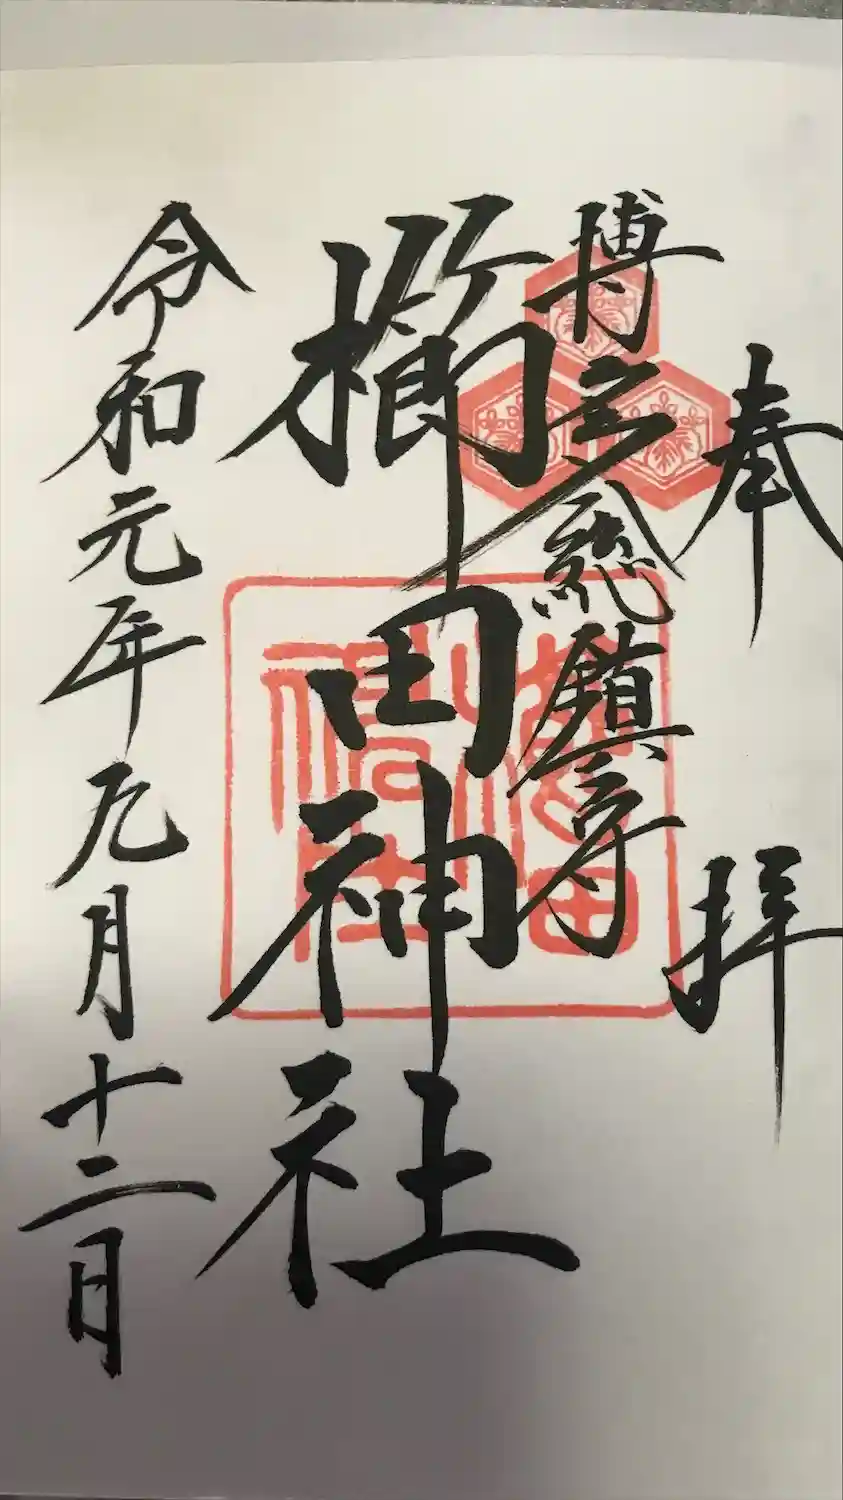 奉拝
博多総鎮守
櫛田神社
令和元年九月十二日
櫛田
神社